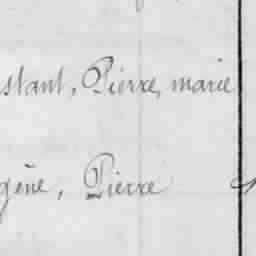 stant, Pierre, marie
gène, Pierre